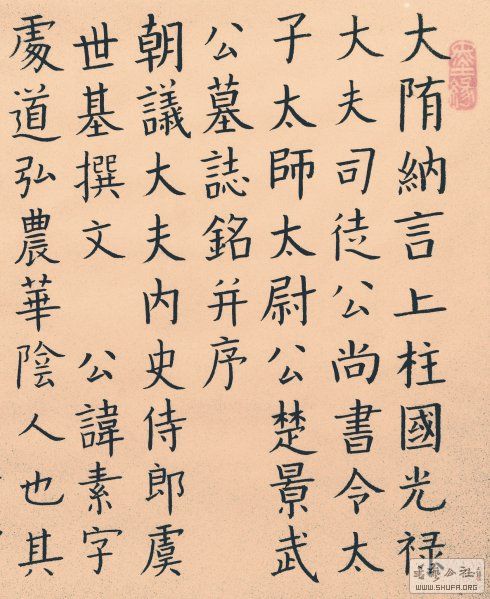 大隋納言上柱國光禄
大夫司徒公尚書令太
子太師太尉公楚景武
公墓誌銘并序
朝議大夫内史侍郎虞
世基撰文 公諱素字
處道弘農華陰人也其
WWW.SHUFA.ORG